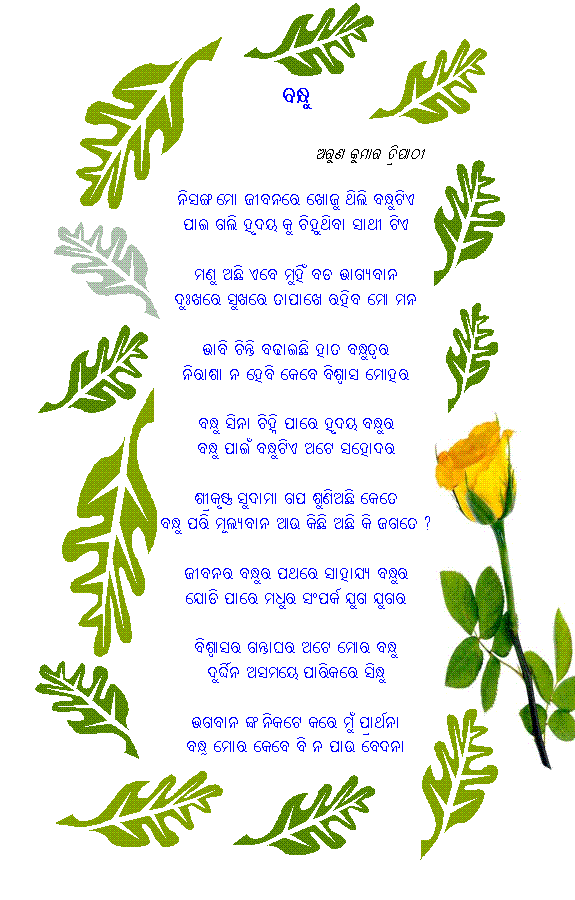 ବନ୍ଧୁ
ଅରୁଣ କୁମାର ତ୍ରିପାଠୀ
ନିସଙ୍ଗ ମୋ ଜୀବନରେ ଖୋଜୁ ଥିଲି ବନ୍ଧୁଟିଏ
ପାଇ ଗଲି ହୃଦୟ କୁ ଚିହ୍ନୁଥିବା ସାଥୀ ଟିଏ
ମଣୁ ଅଛି ଏବେ ମୁହିଁ ବଡ ଭାଗ୍ୟବାନ
ଦୁଃଖରେ ସୁଖରେ ତାପାଖେ ରହିବ ମୋ ମନ
ଭାବି ଚିନ୍ତି ବଢାଇଛି ହାତ ବନ୍ଧୁତ୍ଵର
ନିରାଶା ନ ହେବି କେବେ ବିଶ୍ଵାସ ମୋହର
ବନ୍ଧୁ ସିନା ଚିହ୍ନି ପାରେ ହୃଦୟ ବନ୍ଧୁର
ବନ୍ଧୁ ପାଇଁ ବନ୍ଧୁଟିଏ ଅଟେ ସହୋଦର
ଶ୍ରୀକୃଷ୍ଣ ସୁଦାମା ଗପ ଶୁଣିଅଛି କେତେ
ବନ୍ଧୁ ପରି ମୂଲ୍ୟବାନ ଆଉ କିଛି ଅଛି କି ଜଗତେ ?
ଜୀବନର ବନ୍ଧୁର ପଥରେ ସାହାଯ୍ୟ ବନ୍ଧୁର
ଯୋଡି ପାରେ ମଧୁର ସଂପର୍କ ଯୁଗ ଯୁଗର
ବିଶ୍ଵାସର ଗନ୍ତାଘର ଅଟେ ମୋର ବନ୍ଧୁ
ଦୁର୍ଦ୍ଦିନ ଅସମୟେ ପାରିକରେ ସିନ୍ଧୁ
ଭଗବାନ ଙ୍କ ନିକଟେ କରେ ମୁଁ ପ୍ରାର୍ଥନା
ବନ୍ଧୁ ମୋର କେବେ ବି ନ ପାଉ ବେଦନା